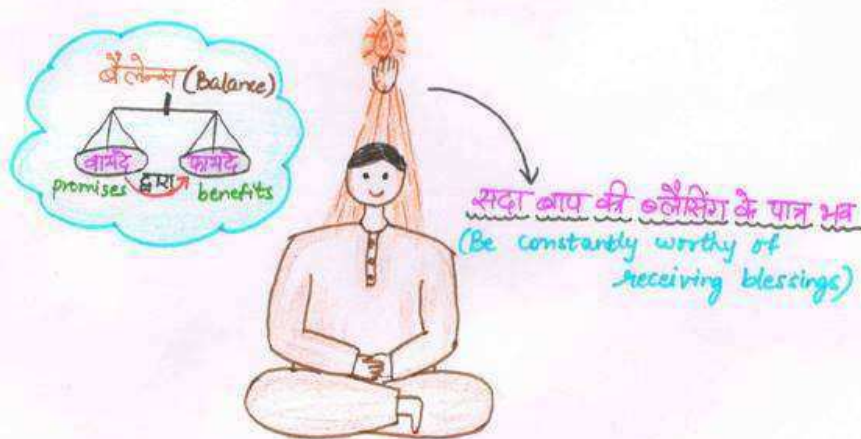 बैलेन्स (Balance)
वायदे द्वारा फायदे
promises benefits
सदा बाप की ब्लैसिंग के पात्र भव
(Be constantly worthy of
receiving blessings)